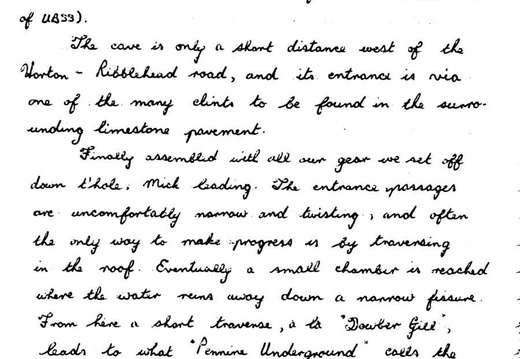 of UBSS).
The cave is only a short distance west of the
Horton - Ribblehead road, and its entrance is via
one of the many clints to be found in the surro-
unding limestone pavement.
Finally assembled with all our gear we set off
down t'hole, Mick leading. The entrance passages
are uncomfortably narrow and twisting, and often
the only way to make progress is by traversing
in the roof. Eventually a small chamber is reached
where the water runs away down a narrow fissure.
From here a short traverse, à la "Dowber Gill",
leads to what "Pennine Underground" calls the